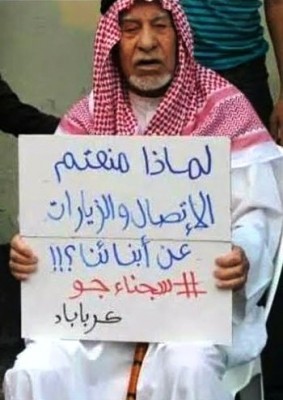 لماذا منعتم
الإتصال والزيارات
عن أبنائنا؟!!
#سجناء جو
كرباباد